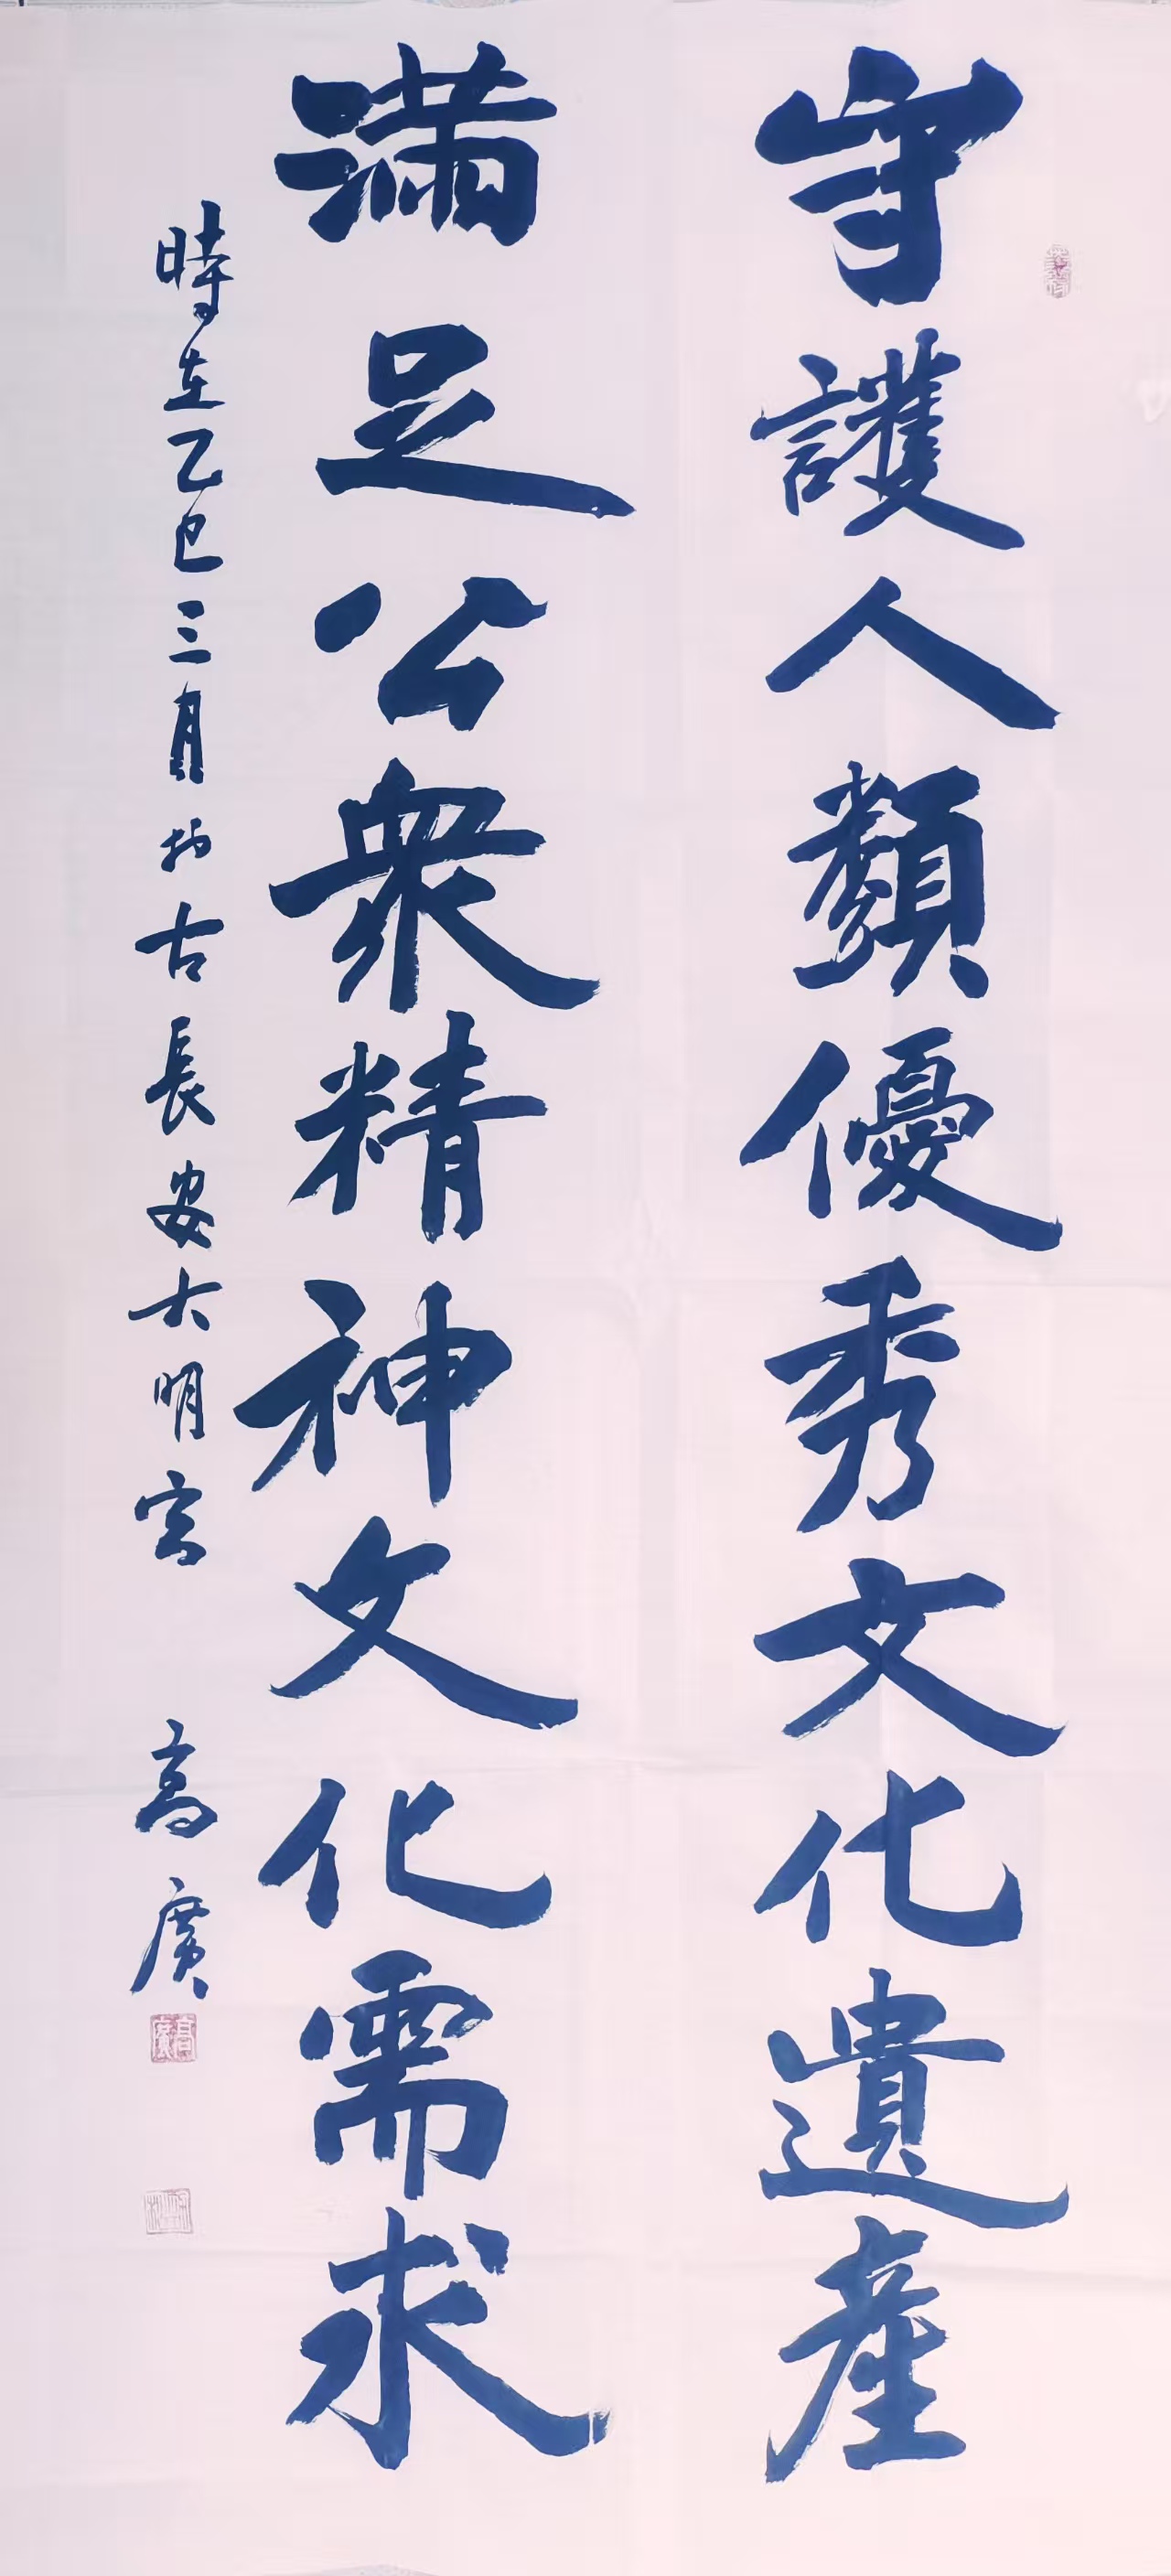 守護人類優秀文化遺產
滿足公衆精神文化需求
時在乙巳三月於古長安大明宮
高廣
高廣